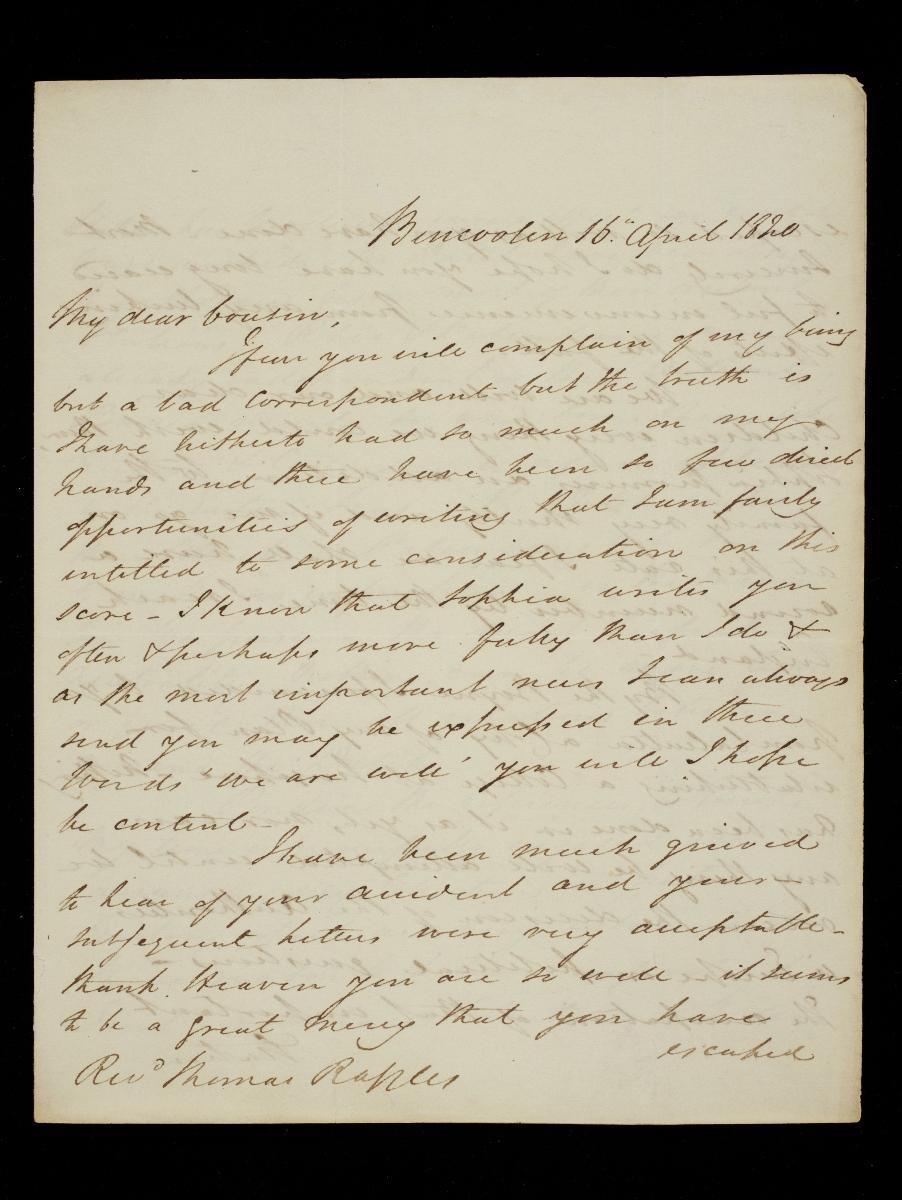 Bencoolen 16th April 1820
My dear Cousin,
I fear you will complain of my being
but a bad Correspondent but the truth is
I have hitherto had so much on my
hands and there have been so few direct
opportunities of writing that I am fairly
intitled to some consideration on this
score - I know that Sophia writes you
often & perhaps more fully than I do &
as the most important news I can always
send you may be expressed in these
words 'we are well' you will I hope
be content -
I have been much grieved
to hear of your accident and your
subsequent letters were very acceptable -
thank Heaven you are so well it seems
to be a great mercy that you have
escaped
Revd Thomas Raffles